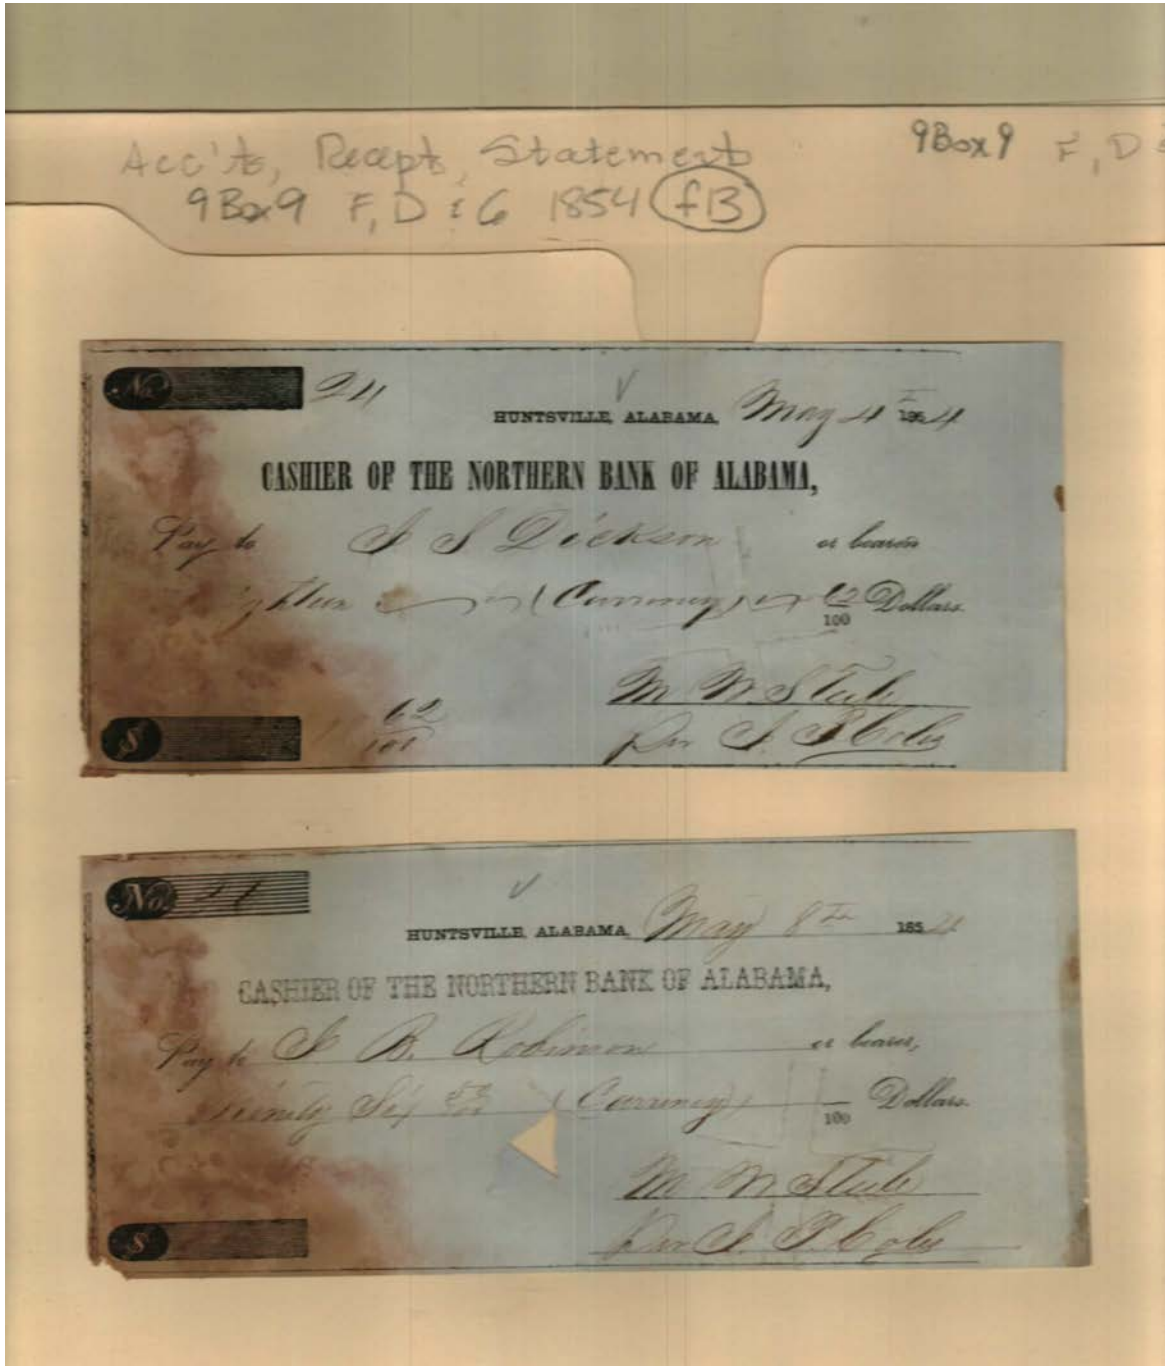 Acc'ts, Recepts, Statement
9Box9 F, D & G 1854 f13
9Box9 F, D &
No. 24
HUNTSVILLE, ALABAMA, May 4 1854
CASHIER OF THE NORTHERN BANK OF ALABAMA,
Pay to J S Dickson or bearer
(Currency) 62/100 Dollars.
62/100
M W Steele
$
Per J. P. Coles
No.
HUNTSVILLE, ALABAMA, May 8th 1854
CASHIER OF THE NORTHERN BANK OF ALABAMA,
Pay to J B. Robinson or bearer,
Seventy Six (Currency) /100 Dollars.
M W Steele
$
Per J. P. Coles